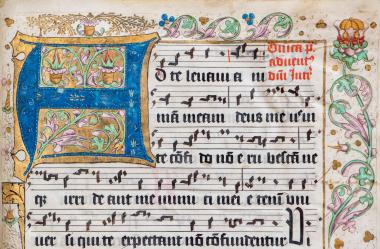 Dnica p.
aduent
dni Intr
Ad te leuaui a ni
mam meam deus me us in
te cōfi do nō e ru bescā ne
qꝫ irri de ant me inimi ci mei e teni uni
uer si qui te expectant nō cōfundentur